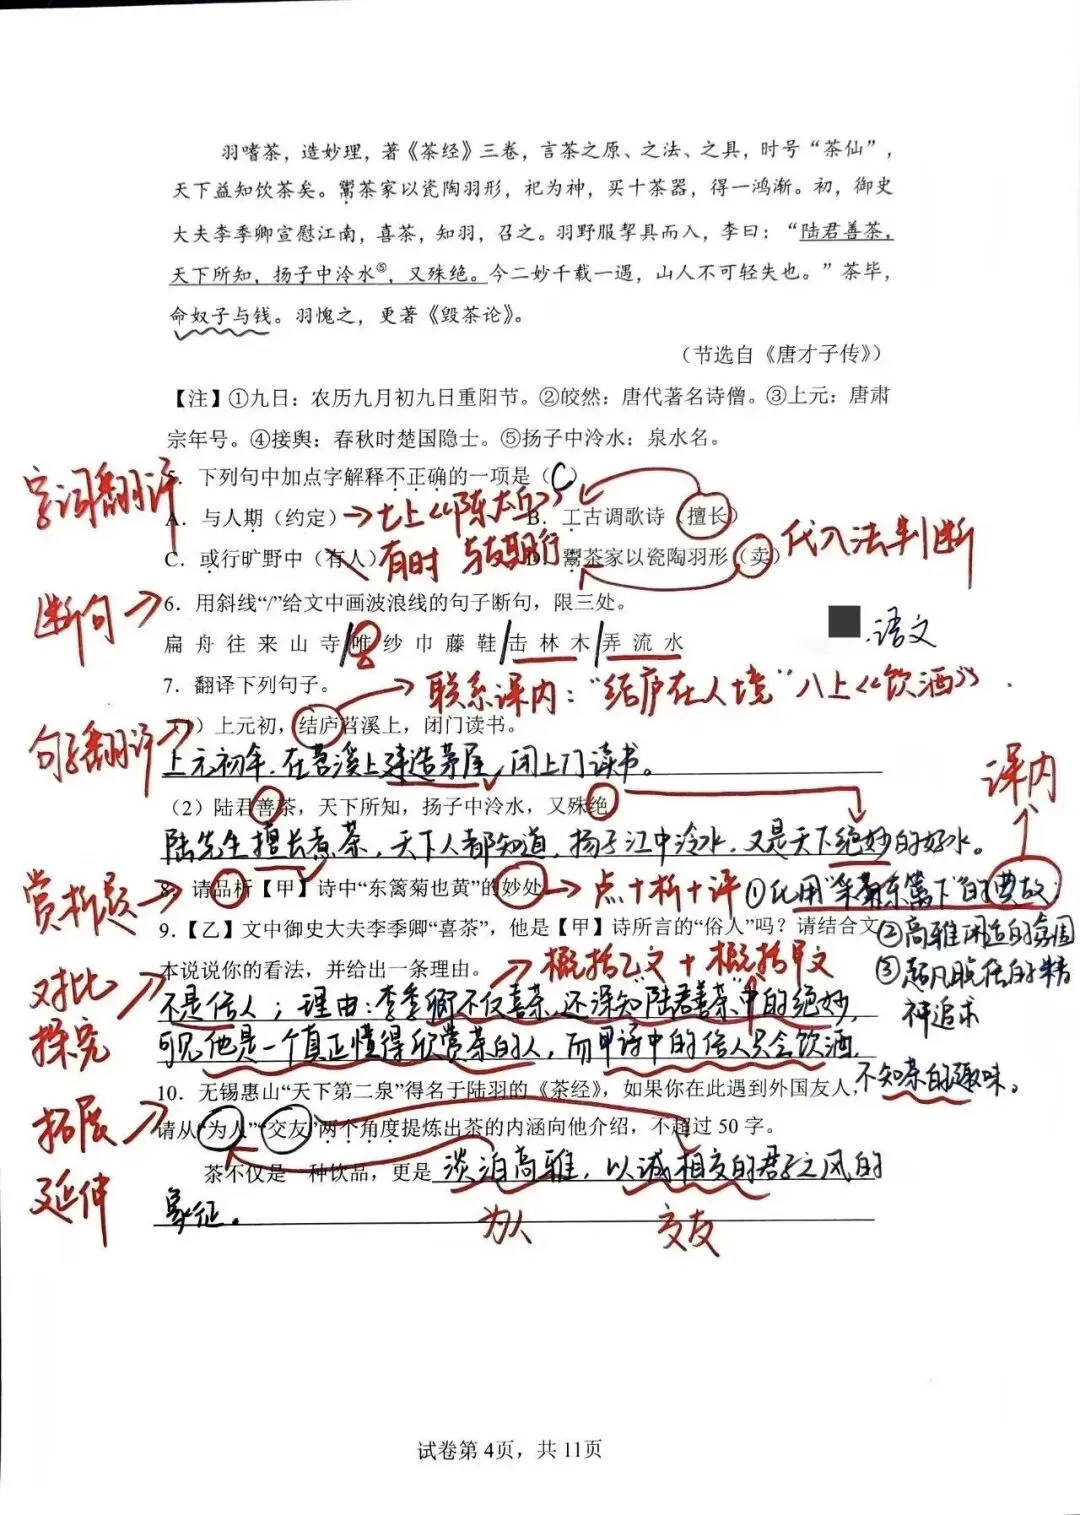 羽嗜茶，造妙理，著《茶经》三卷，言茶之原、之法、之具，时号“茶仙”，
天下益知饮茶矣。鬻茶家以瓷陶羽形，祀为神，买十茶器，得一鸿渐。初，御史
大夫李季卿宣慰江南，喜茶，知羽，召之。羽野服挈具而入，李曰：“陆君善茶，
天下所知，扬子中泠水⑤，又殊绝。今二妙千载一遇，山人不可轻失也。”茶毕，
命奴子与钱。羽愧之，更著《毁茶论》。
（节选自《唐才子传》）
【注】①九日：农历九月初九日重阳节。②皎然：唐代著名诗僧。③上元：唐肃
宗年号。④接舆：春秋时楚国隐士。⑤扬子中泠水：泉水名。
字词翻译
5．下列句中加点字解释不正确的一项是（C）
A．与人期（约定）→七上《陈太丘》 B．工古调歌诗（擅长）
与友期行
代入法判断
C．或行旷野中（有人）有时 D．鬻茶家以瓷陶羽形（卖）
断句
6．用斜线“/”给文中画波浪线的句子断句，限三处。
扁舟往来山寺/唯纱巾藤鞋/击林木/弄流水
语文
7．翻译下列句子。
联系课内：“结庐在人境”八上《饮酒》
句子翻译
（1）上元初，结庐苕溪上，闭门读书。
上元初年，在苕溪上建造茅屋，闭上门读书。
课内
（2）陆君善茶，天下所知，扬子中泠水，又殊绝。
陆先生擅长煮茶，天下人都知道，扬子江中泠水，又是天下绝妙的好水。
赏析题
8．请品析【甲】诗中“东篱菊也黄”的妙处→点+析+评 ①化用“采菊东篱下”的典故；
②高雅闲适的氛围
③超凡脱俗的精
神追求
9．【乙】文中御史大夫李季卿“喜茶”，他是【甲】诗所言的“俗人”吗？请结合文
本说说你的看法，并给出一条理由。→概括乙文+概括甲文
对比
探究
不是俗人；理由：李季卿不仅喜茶，还深知“陆君善茶”中的绝妙，
可见他是一个真正懂得欣赏茶的人，而甲诗中的俗人只会饮酒，
不知茶的趣味。
拓展
延伸
10．无锡惠山“天下第二泉”得名于陆羽的《茶经》，如果你在此遇到外国友人，
请从“为人”“交友”两个角度提炼出茶的内涵向他介绍，不超过 50 字。
茶不仅是一种饮品，更是 淡泊高雅，以诚相交的君子之风的
象征。
为人 交友
试卷第 4页，共 11页